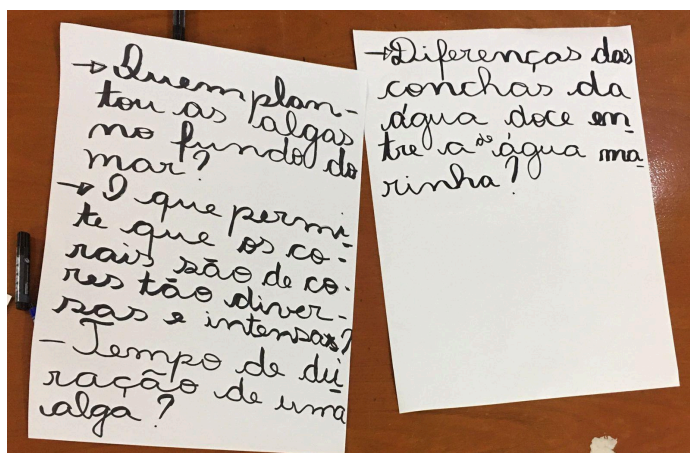 → Quem plan-
tou as algas
no fundo do
mar?
→ O que permi-
te que os co-
rais são de co-
res tão diver-
sas e intensas?
- Tempo de du
ração de uma
alga?
→ Diferenças das
conchas da
água doce en
tre a de água ma
rinha?